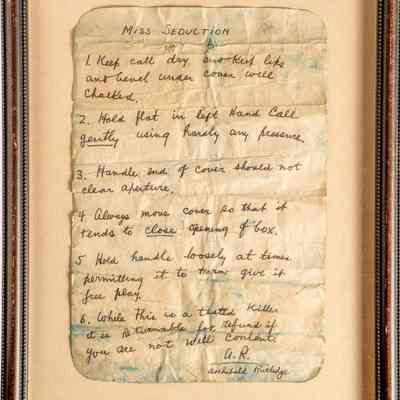 Miss Seduction
1. Keep call dry, and keep like
and bevel under cover well
chalked.
2. Hold flat in left Hand Call
gently using hardly any pressure.
3. Handle end of cover should not
clear aperture.
4 Always move cover so that it
tends to close opening of box.
5 Hold handle loosely at times
permitting it to turn give it
free play.
6. While This is a tested Killer
it is returnable for refund if
you are not well content.
A.R.
Archibald Rutledge